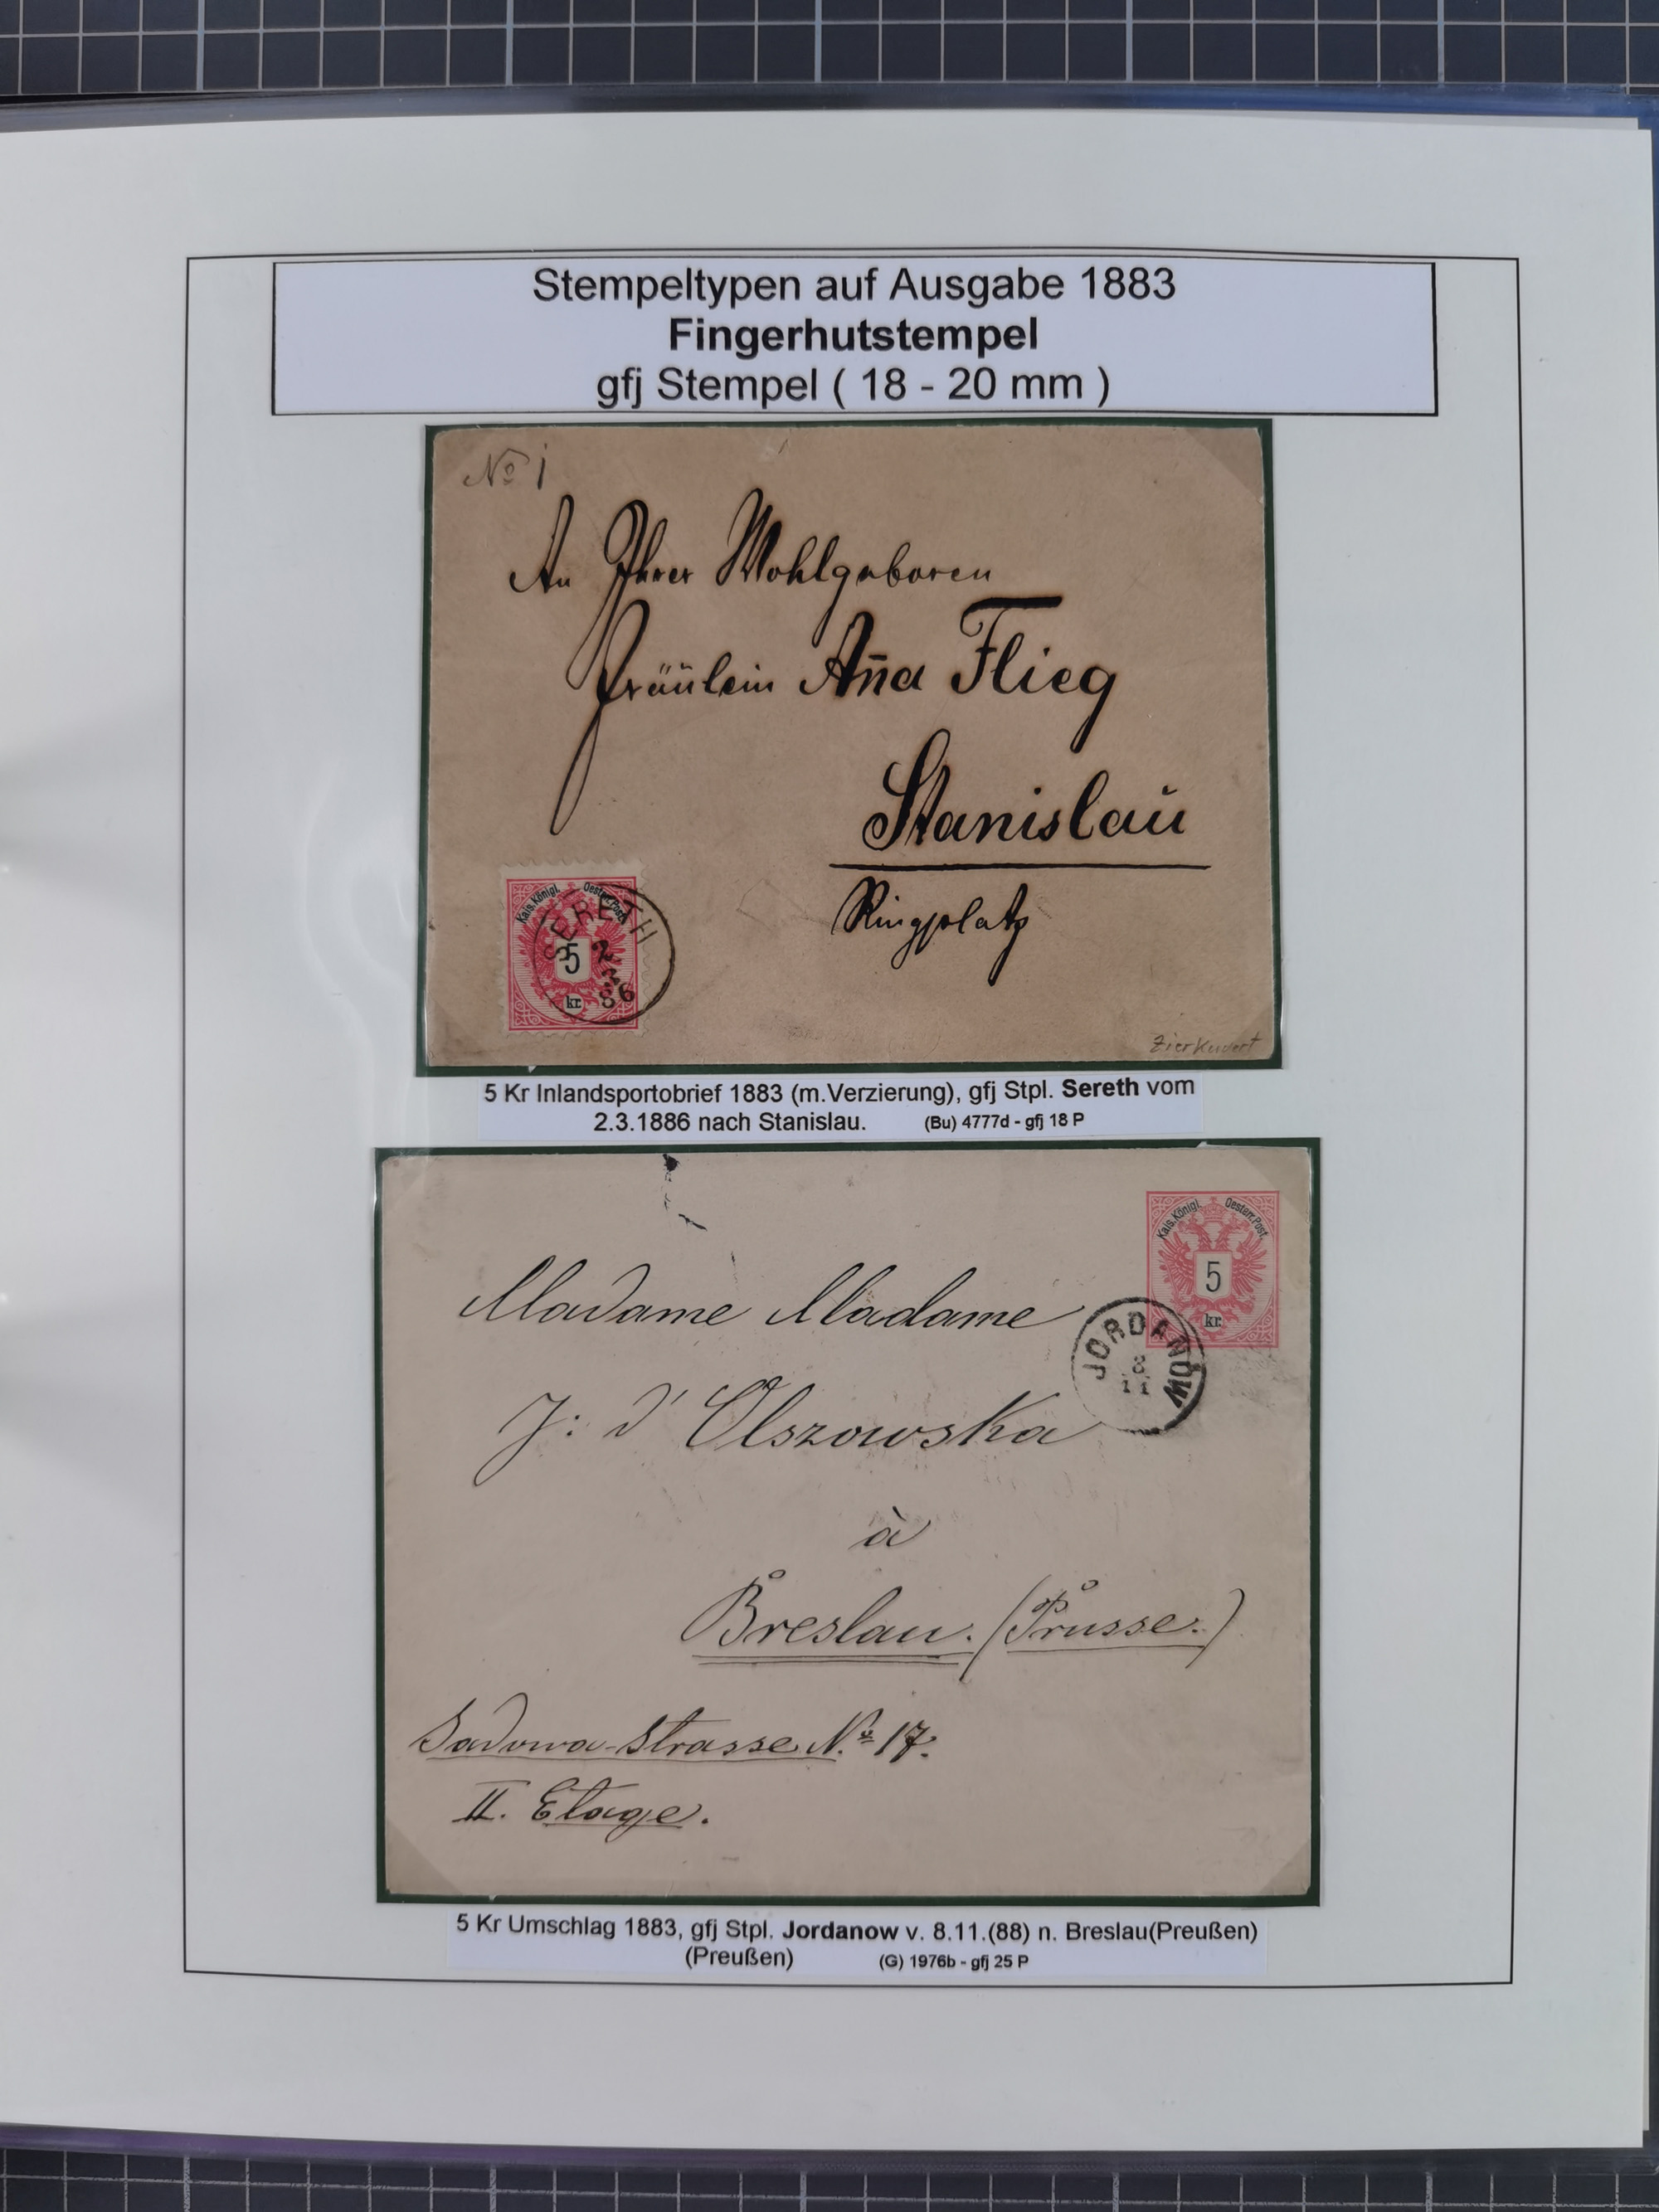 Stempeltypen auf Ausgabe 1883
Fingerhutstempel
gfj Stempel ( 18 - 20 mm )
No 1
An Ihrer Wohlgeboren
Fräulein Anna Flieg
Stanislau
Ringplatz
Kais. Königl. Oesterr. Post.
5
kr.
SERETH
2
3
86
Zierkuvert
5 Kr Inlandsportobrief 1883 (m.Verzierung), gfj Stpl. Sereth vom
2.3.1886 nach Stanislau. (Bu) 4777d - gfj 18 P
Kais. Königl. Oesterr. Post.
5
kr.
JORDANÓW
8
11
Madame Madame
J: d' Olszowska
à
Breslau. (Prusse.)
Sadowa-Strasse No 17.
II. Etage.
5 Kr Umschlag 1883, gfj Stpl. Jordanow v. 8.11.(88) n. Breslau(Preußen)
(Preußen) (G) 1976b - gfj 25 P